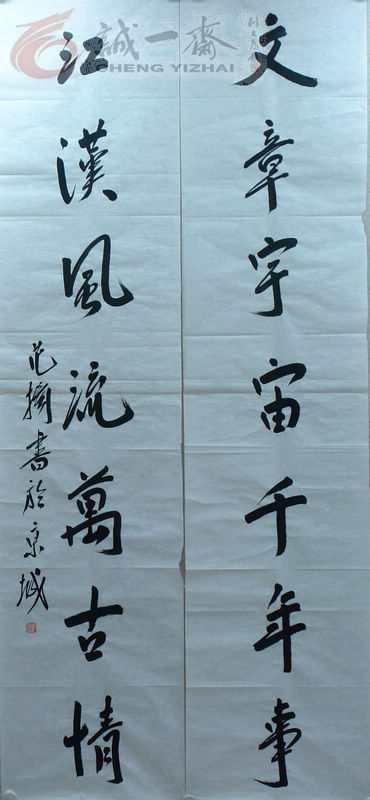 誠一齋
CHENG YIZHAI
文章宇宙千年事
江漢風流萬古情
范擴書於京城